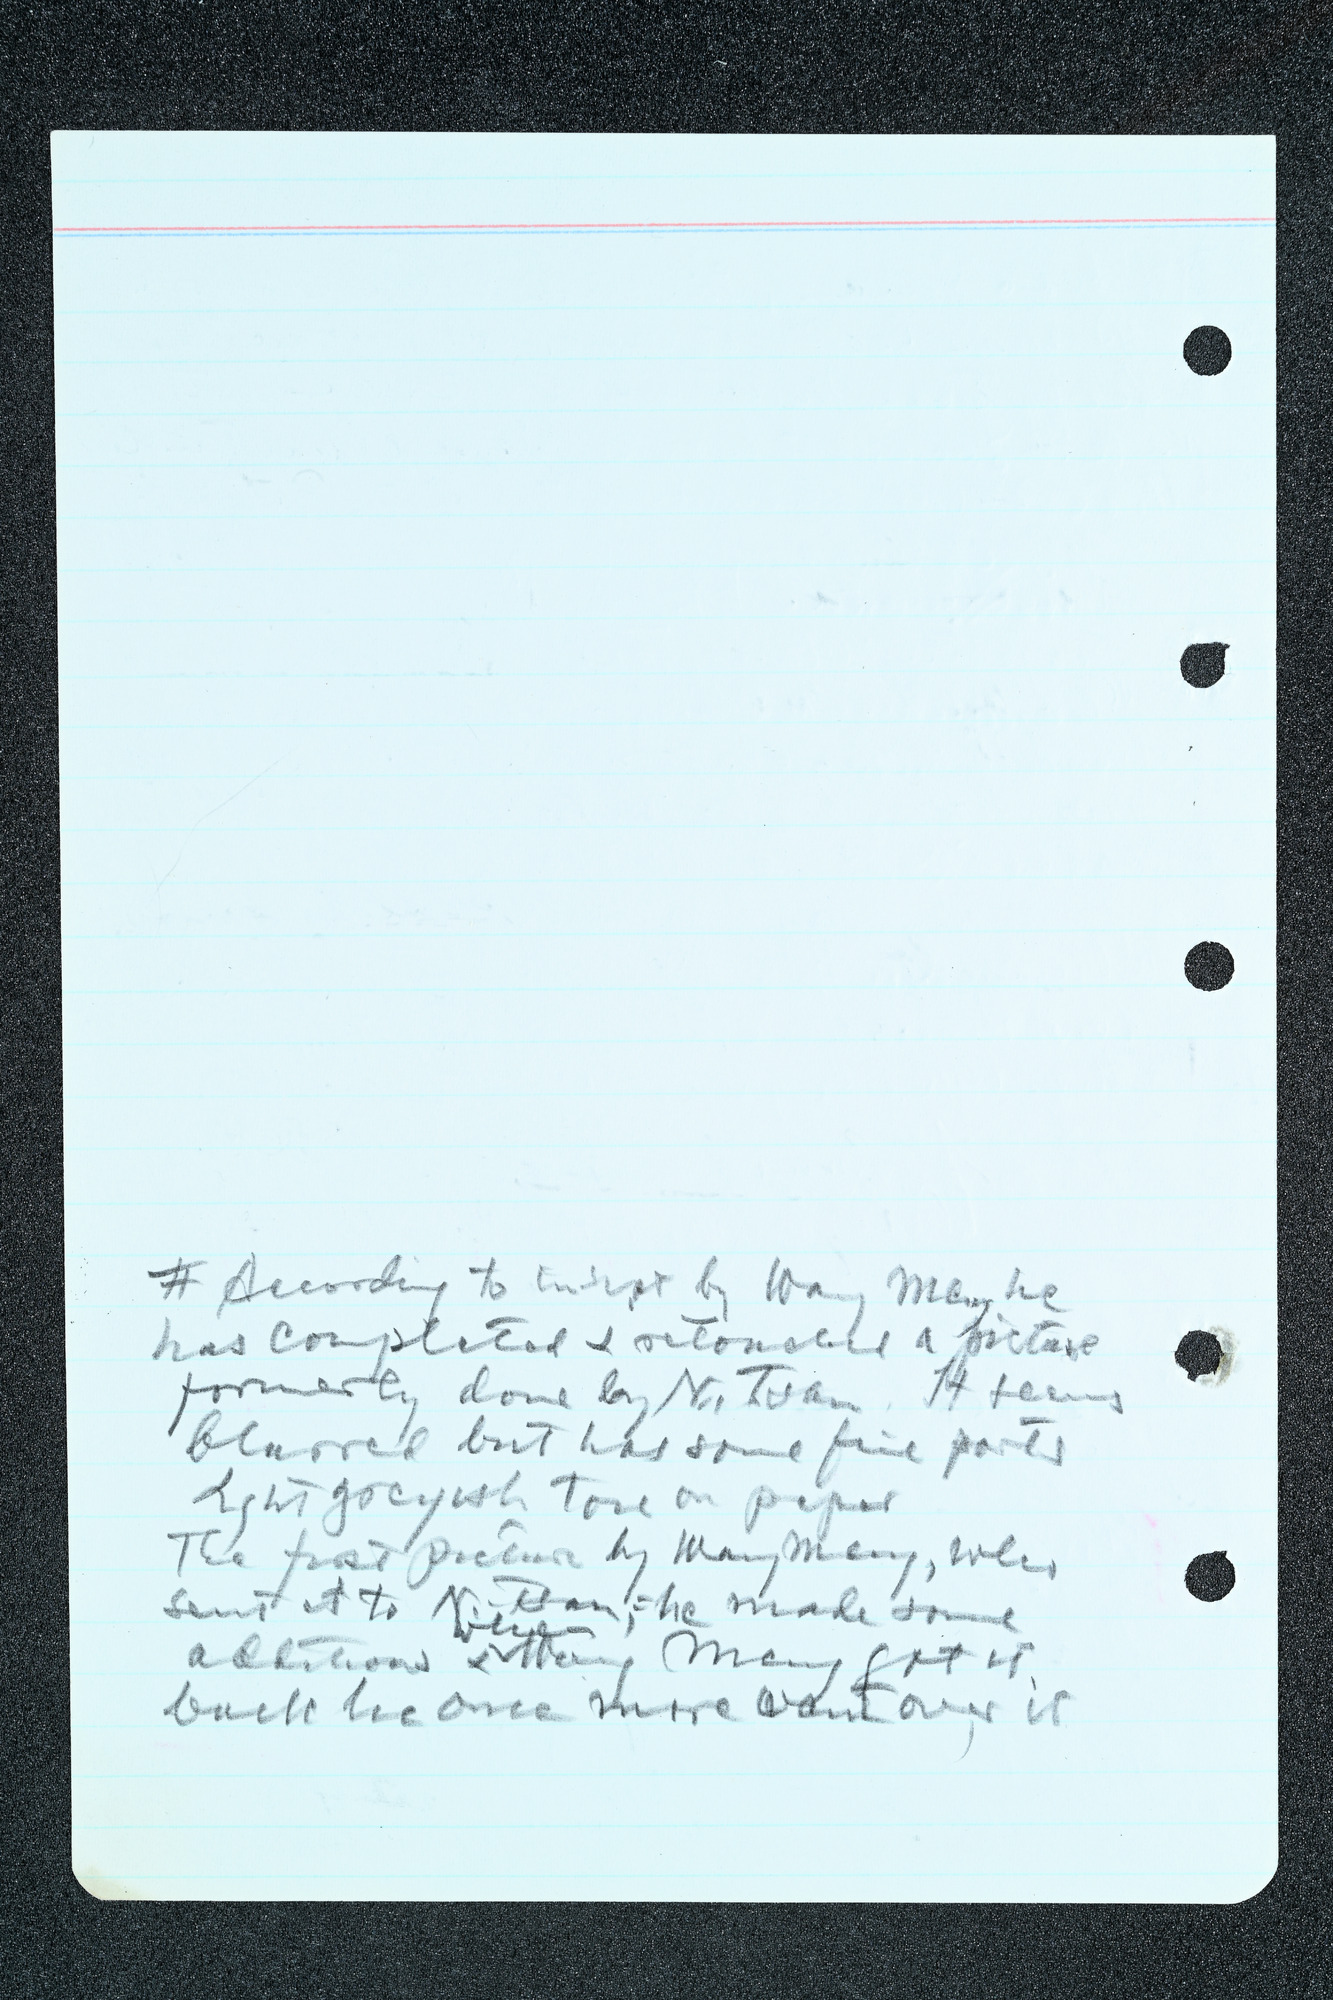 # According to inscpt by Wang Meng he
has completed & retouched a picture
formerly done by Ni Tsan. It seems
blurred but has some fine parts
light greyish tone on paper
The first picture by Wang Meng, who
sent it to Ni Tsan, he made some
additions & when Meng got it
back he once more went over it